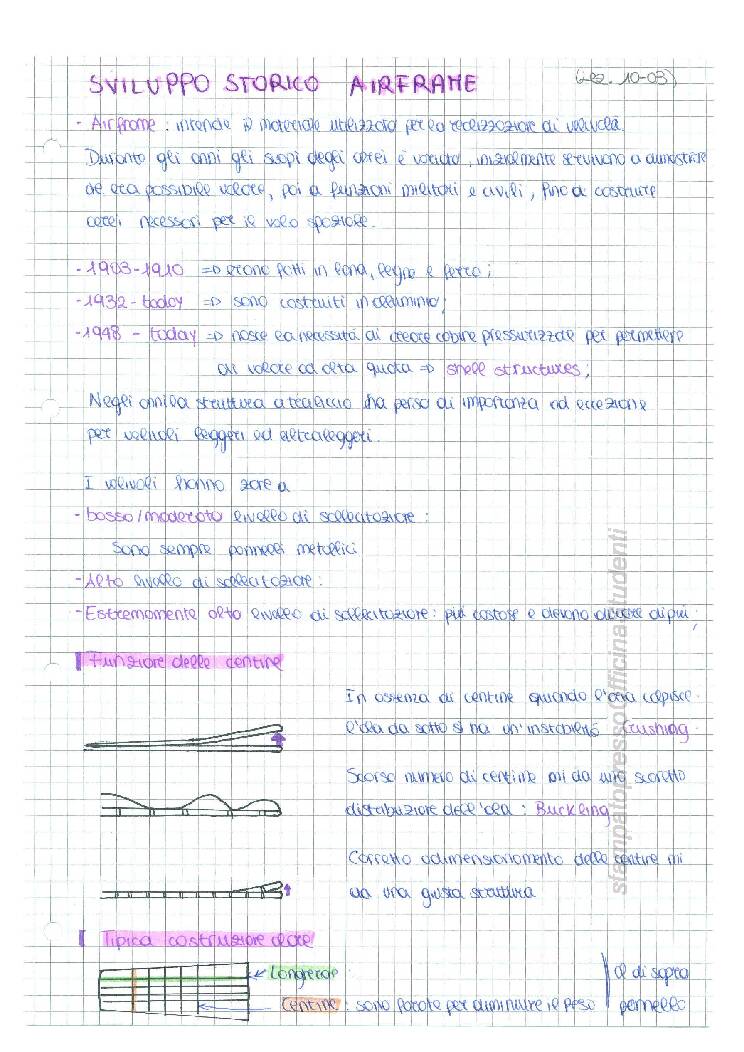 SVILUPPO STORICO AIRFRAME
(Lez. 10-03)
- Airframe : intende il materiale utilizzato per la realizzazione di velivola.
Durante gli anni gli scopi degli aerei è variato, inizialmente servivano a dimostrare
che era possibile volare, poi a funzioni militari e civili, fino a costruire
aerei necessari per il volo spaziale.
- 1903-1910 => erano fatti in tela, legno e ferro ;
- 1932 - today => sono costruiti in alluminio;
- 1948 - today => nasce la necessità di creare cabine pressurizzate per permettere
di volare ad alta quota => shell structures ;
Negli anni la struttura a traliccio ha perso di importanza ad eccezione
per velivoli leggeri ed ultraleggeri.
I velivoli hanno zone a
- basso/moderato livello di sollecitazione :
Sono sempre pannelli metallici
- Alto livello di sollecitazione :
- Estremamente alto livello di sollecitazione : più costose e devono durare di più ;
Funzione delle centine
In assenza di centine quando l'aria colpisce
l'ala da sotto si ha un'instabilità Crushing
Scarso numero di centine mi da una scorretta
distribuzione dell'ala : Buckling
Corretto dimensionamento delle centine mi
da una giusta struttura
Tipica costruzione alare
Longherone
Centine : sono forate per diminuire il peso
al di sopra
pannello
stampatopressoOfficinaStudenti